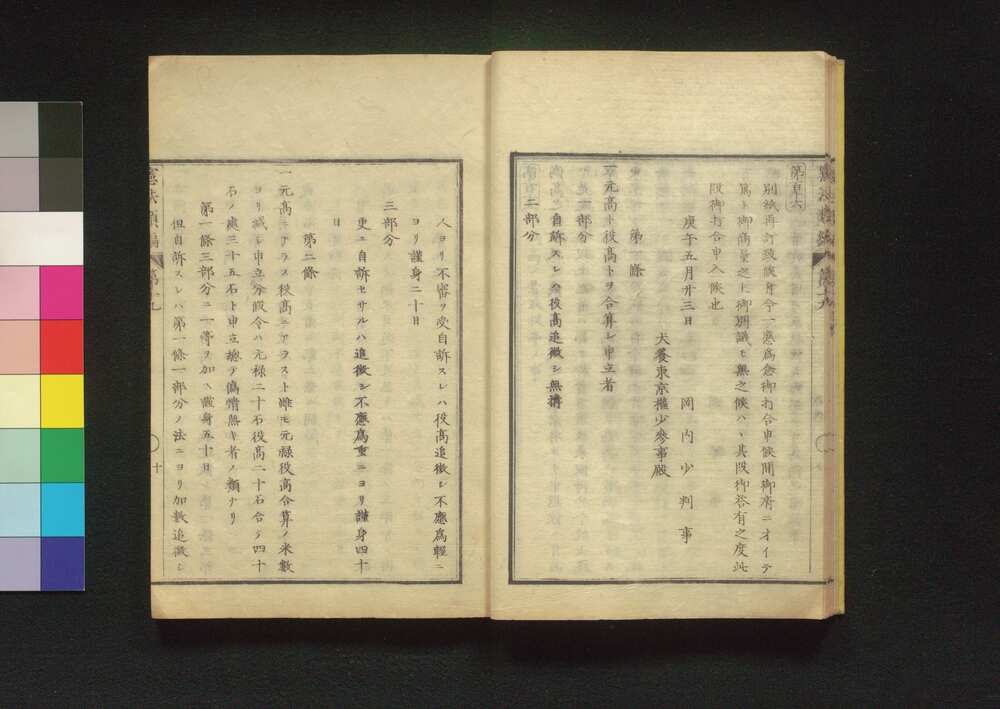 憲法類編 第十九
第百六
別紙再訂致候身今一應爲念御打合申候間御府ニオイテ
篤ト御商量之上御別識モ無之候ハヽ其段御答有之度此
段御打合申入候也
庚午五月廿三日
岡内少判事
犬養東京權少參事殿
第一條
一元高ト役高トヲ合算シ申立者
一部分
自訴スレハ全役高追徴シ無搆
二部分
人ヨリ不審ヲ受自訴スレハ役高追徴シ不應爲輕ニ
ヨリ謹身二十日
三部分
更ニ自訴セサルハ追徴シ不應爲重ニヨリ謹身四十
日
第二條
一元高ニアラス役高ニアラスト雖モ元祿役高合算ノ米數
ヨリ減シ申立分假令ハ元祿二十石役高二十石合テ四十
石ノ處三十五石ト申立總テ僞情無キ者ノ類ナリ
第一條三部分ニ一等ヲ加ヘ謹身五十日
但自訴スレハ第一條一部分ノ法ニヨリ加數追徴シ
憲法類編 第十九
十